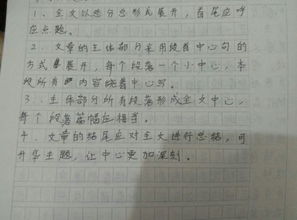 1、全文以总分总形式展开，首尾应呼
应点题。
2、文章的主体部分采用段首中心句的
方式展开，每个段落一个小中心，本
段所有的内容绕着中心写。
3、主体部分所有段落形成全文中心，
每个段落篇幅应相等。
4、文章的结尾应对全文进行总结，可
升华主题，让中心更加深刻。